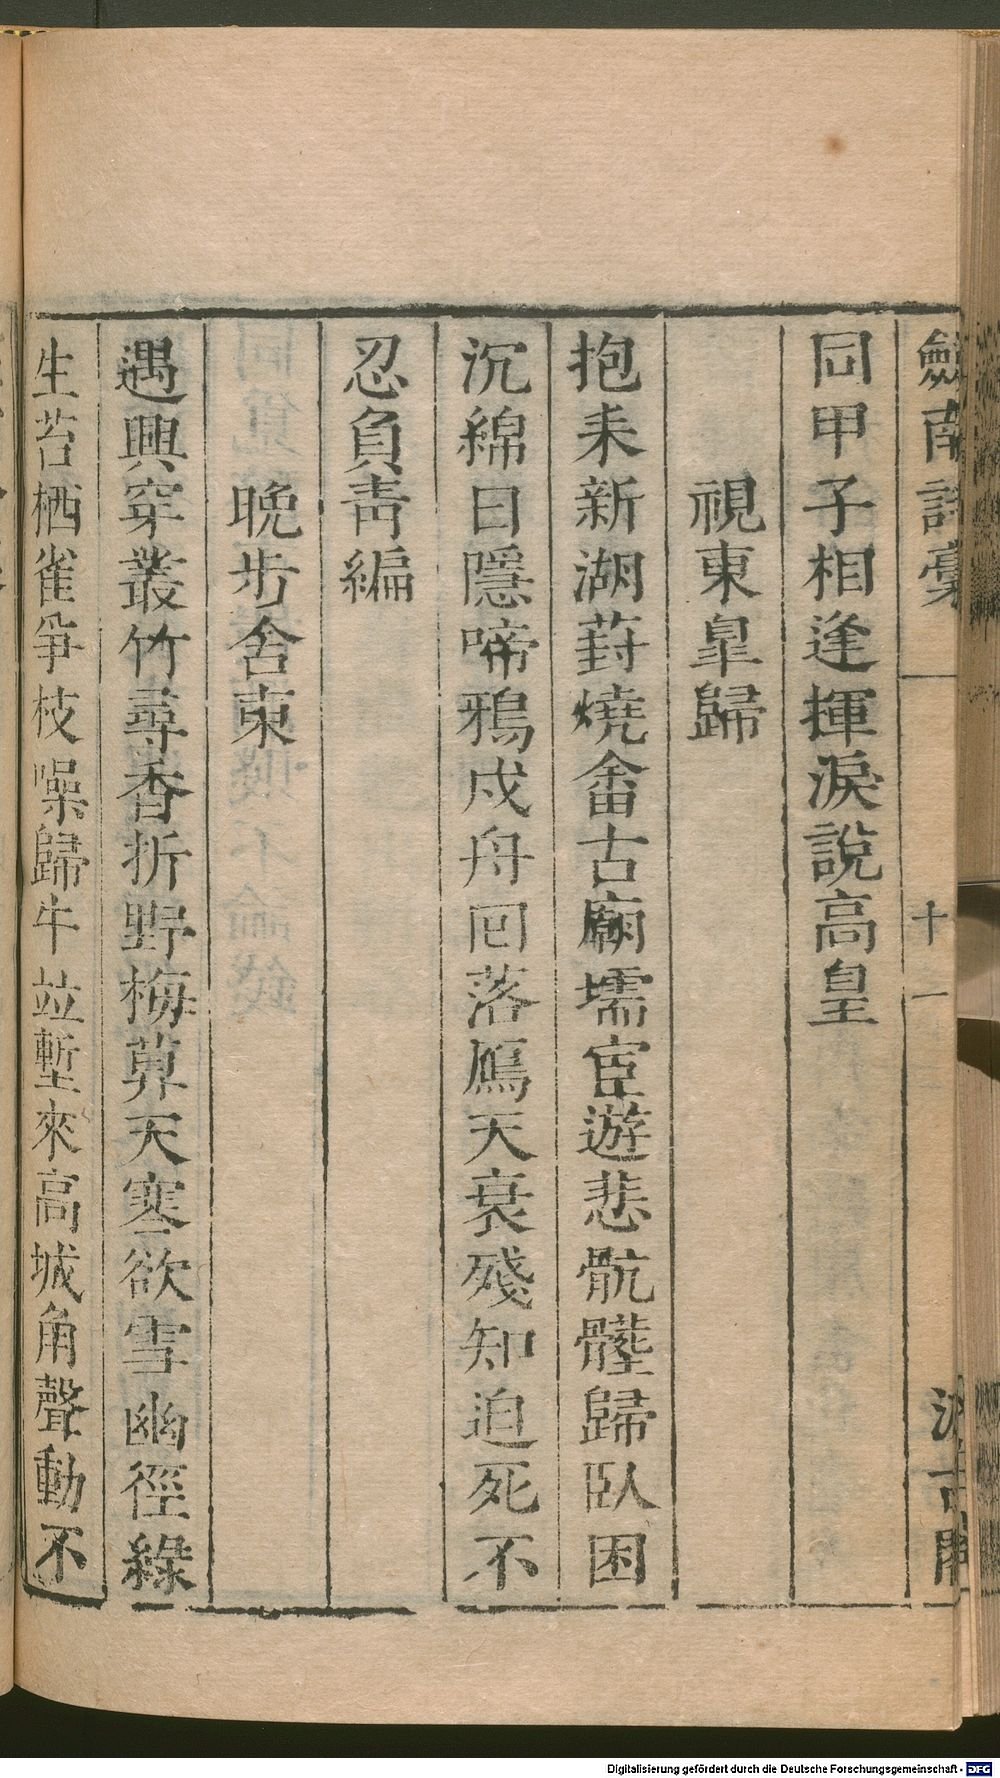 劍南詩稾
十一
汲古閣
同甲子相逢揮淚說高皇
視東皐歸
抱耒新湖葑燒畬古廟壖宦遊悲骯髒歸臥困
沉綿日隱啼鴉戍舟回落鴈天衰殘知迫死不
忍負靑編
晚步舍東
遇興穿叢竹尋香折野梅算天寒欲雪幽徑綠
生苔栖雀爭枝噪歸牛竝塹來高城角聲動不
Digitalisierung gefördert durch die Deutsche Forschungsgemeinschaft - DFG